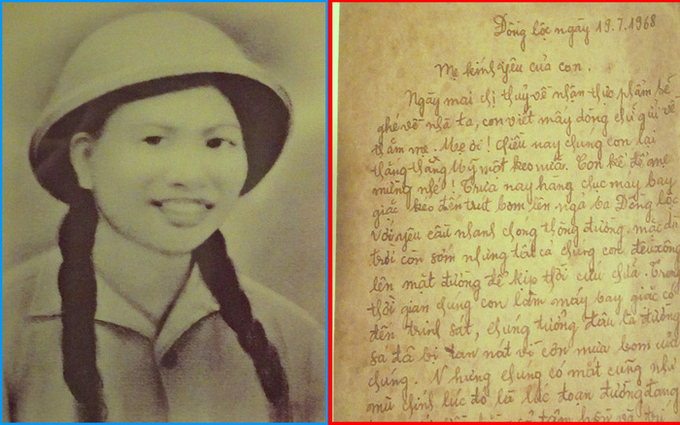 Đồng Lộc ngày 19.7.1968
Mẹ kính yêu của con.
Ngày mai chị thuỷ về nhận thực phẩm sẽ
ghé về nhà ta, con viết mấy dòng chữ gửi về
thăm mẹ. Mẹ ơi! Chiều nay chúng con lại
thắng thằng Mỹ một keo nữa. Con kể để mẹ
mừng nhé! Trưa nay hàng chục máy bay
giặc kéo đến trút bom lên ngã ba Đồng Lộc
với yêu cầu nhanh chóng thông đường, mặc dù
trời còn sớm nhưng tất cả chúng con đều xông
lên mặt đường để kịp thời cứu chữa. Trong
thời gian chúng con làm máy bay giặc có
đến trinh sát, chúng tưởng đâu là đường
sá đã bị tan nát vì cơn mưa bom của
chúng. Nhưng chúng có mắt cũng như
mù chính lúc đó là lúc đoạn đường đang